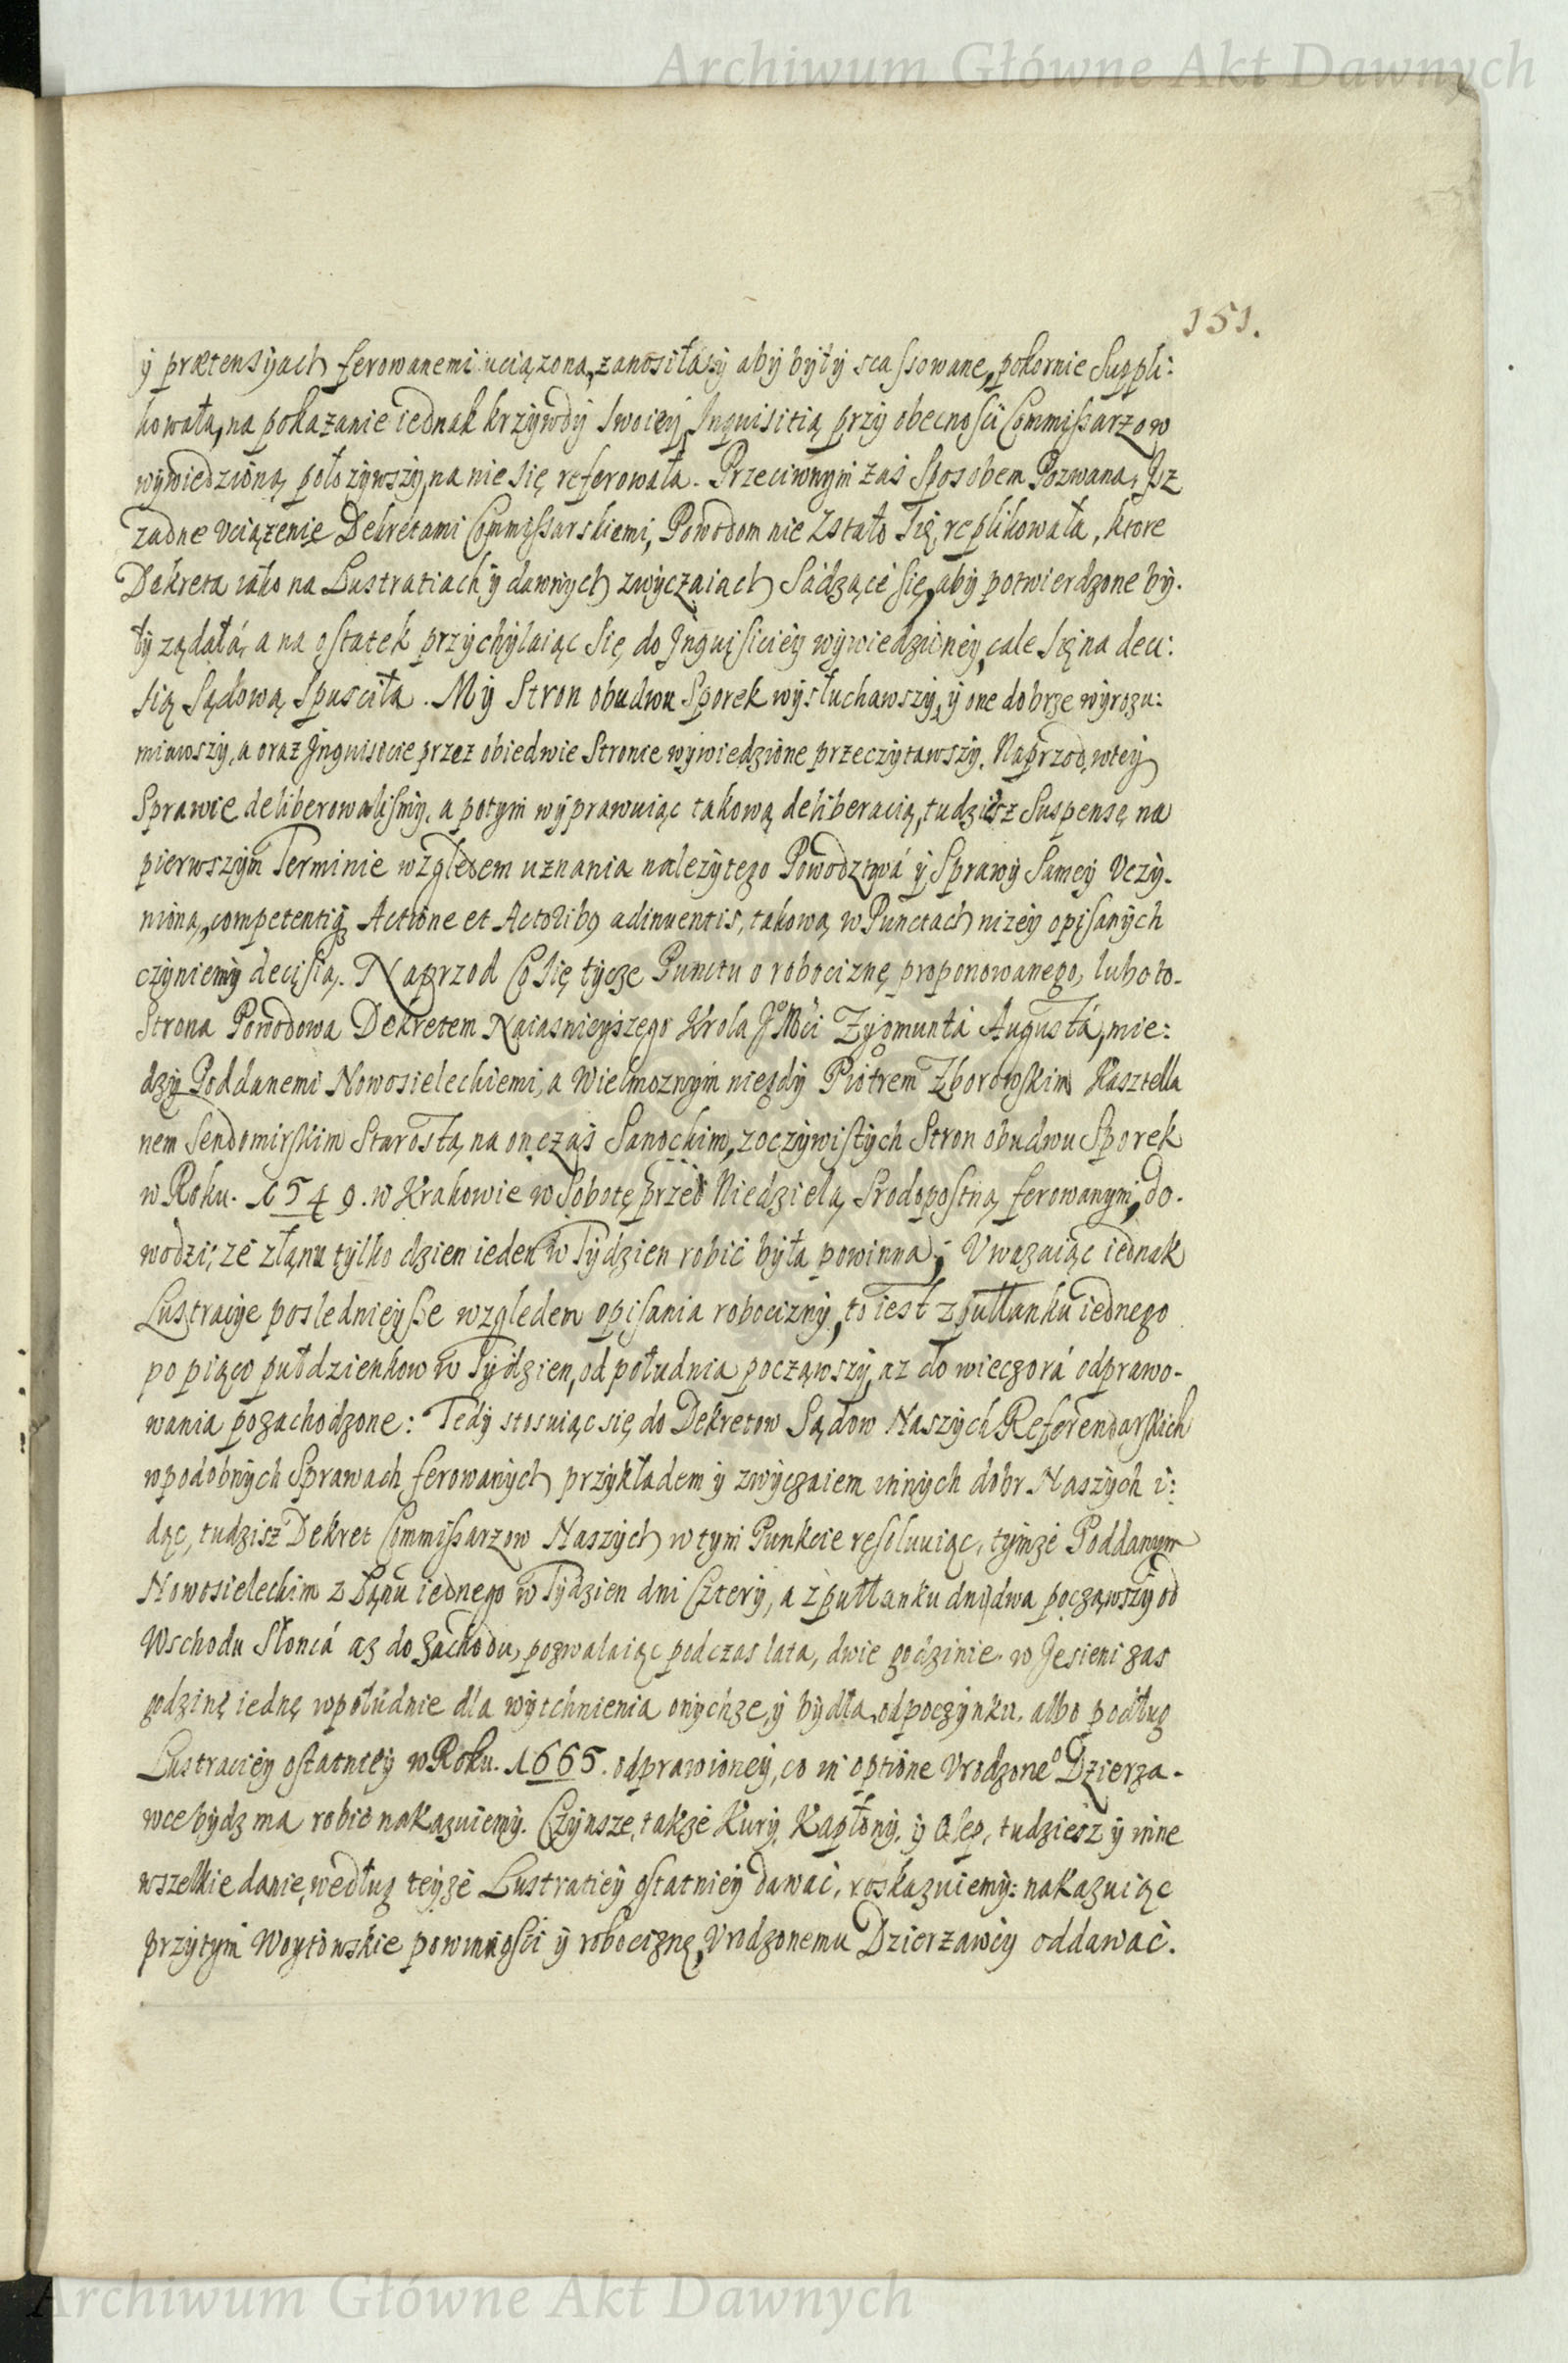 Archiwum Główne Akt Dawnych
151.
ÿ prætensÿach ferowanemi uciązona, zanosiłasÿ abÿ bÿłÿ scassowane, pokornie Suppli:
kowała, na pokazanie iednak krzÿwdÿ swoieÿ Inquisitią przÿ obecnosći Commissarzow
wÿwiedzioną położÿwszÿ, na nie się referowała. Przeciwnÿm zaś Sposobem Pozwana, Jsz
zadne uciążenie Dekretami Commissarskiemi, Powodom nie zstało się, replikowała, ktore
Dekreta iako na Lustratiach ÿ dawnÿch zwÿczaiach Sádzące się, abÿ potwierdzone bÿ.
łÿ ządałá, a na ostatek przÿchÿlaiąc się do Jnquisicieÿ wÿwiedzioneÿ, cale się na deci:
sią Sądową Spusciła. Mÿ Stron obudwu Sporek wÿsłuchawszÿ, ÿ one dobrze wÿrozu:
miawszÿ, a oraz Jnquisicie przez obiedwie Stronie wÿwiedzione przeczÿtawszÿ. Naprzod wteÿ
Sprawie deliberowalismÿ, a potÿm wÿprawuiąc takową deliberacią, tudziesz Suspensę na
pierwszÿm Terminie względem uznania należÿtego Powodztwá ÿ Sprawÿ Sameÿ Uczÿ.
nioną, competentią Actione et Actoribꝰ adinuentis, takową w Punctach niżeÿ opisanÿch
czÿniemÿ decisią. Naprzod Co się tÿcze Punctu o robociznę proponowanego, lubo to.
Strona Powodowa Dekretem Naiasnieÿszego Krola JoMci Zÿgmuntá Augustá, mie:
dzÿ Poddanemi Nowosieleckiemi, a Wielmoznÿm niegdÿ Piotrem Zborowskim Kasztella
nem Sendomirskim Starostą, na on czas Sanockim, z oczÿwistÿch Stron obudwu Sporek
w Roku. 1549. w Krakowie w Sobotę przed Niedzielą Srodopostną ferowanÿm, do.
wodzi, ze złanu tÿlko dzien ieden w Tÿdzien robić bÿła powinna; Uwazaiąc iednak
Lustracÿe posledniejsze względem opisania robociznÿ, to iest z pułłanku iednego
po pięciu pułdzienkow w Tÿdzien, od południa począwszÿ, az do wieczorá odprawo-
wania pozachodzone: Tedÿ stosuiąc się do Dekretow Sądow Naszÿch Referendarskich
wpodobnÿch Sprawach ferowanÿch przÿkładem ÿ zwÿczaiem innÿch dobr Naszÿch i:
dąc, tudzisz Dekret Commissarzow Naszÿch w tÿm Punkcie resoluuiąc, tÿmże Poddanÿm
Nowosieleckim z Łanu iednego w Tÿdzien dni Czterÿ, a z pułłanku dni dwa począwszÿ od
Wschodu Słoncá az do zachodu, pozwalaiąc podczas lata, dwie godzinie. w Jesieni zas
godzinę iednę wpołudnie dla wÿtchnienia onÿchze, ÿ bÿdła odpoczÿnku. albo podług
Lustracieÿ ostatnieÿ w Roku. 1665. odprawioneÿ, co in optione Urodzoneo Dzierza-
wce bÿdz ma robic nakazuiemÿ. Czÿnsze, także Kurÿ, Kapłonÿ, ÿ Osep, tudziesz ÿ inne
wszelkie danie, według teÿże Lustratieÿ ostatnieÿ dawać, roskazuiemÿ: nakazuiąc
przÿtÿm Woÿtowskie powinnosći ÿ robociznę, Urodzonemu Dzierzawcÿ oddawać.
Archiwum Główne Akt Dawnych